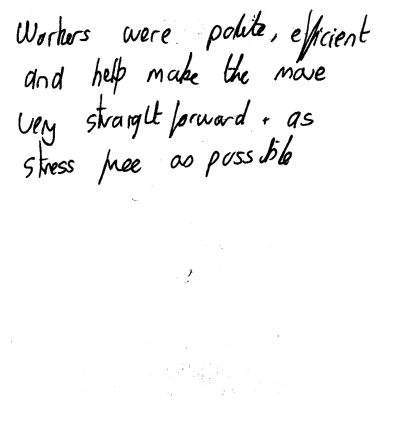 Workers were polite, efficient
and help make the move
very straight forward + as
stress free as possible